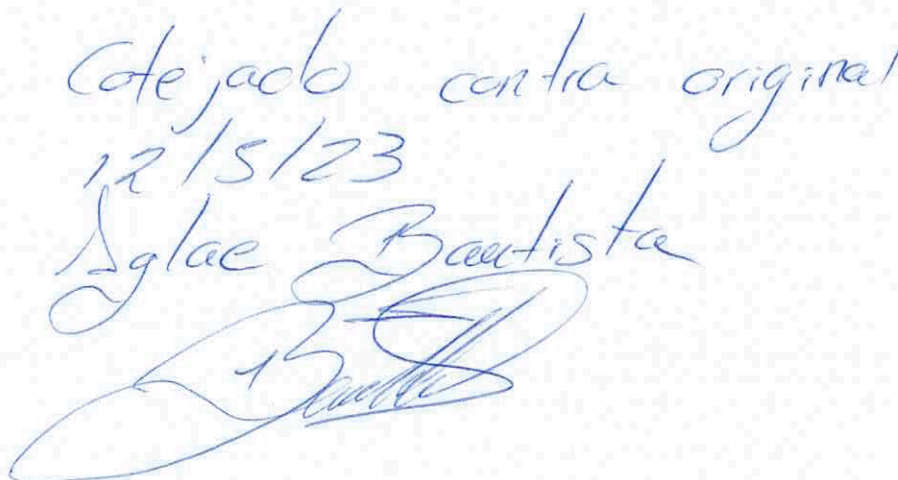 Cotejado contra original
12/5/23
Aglae Bautista